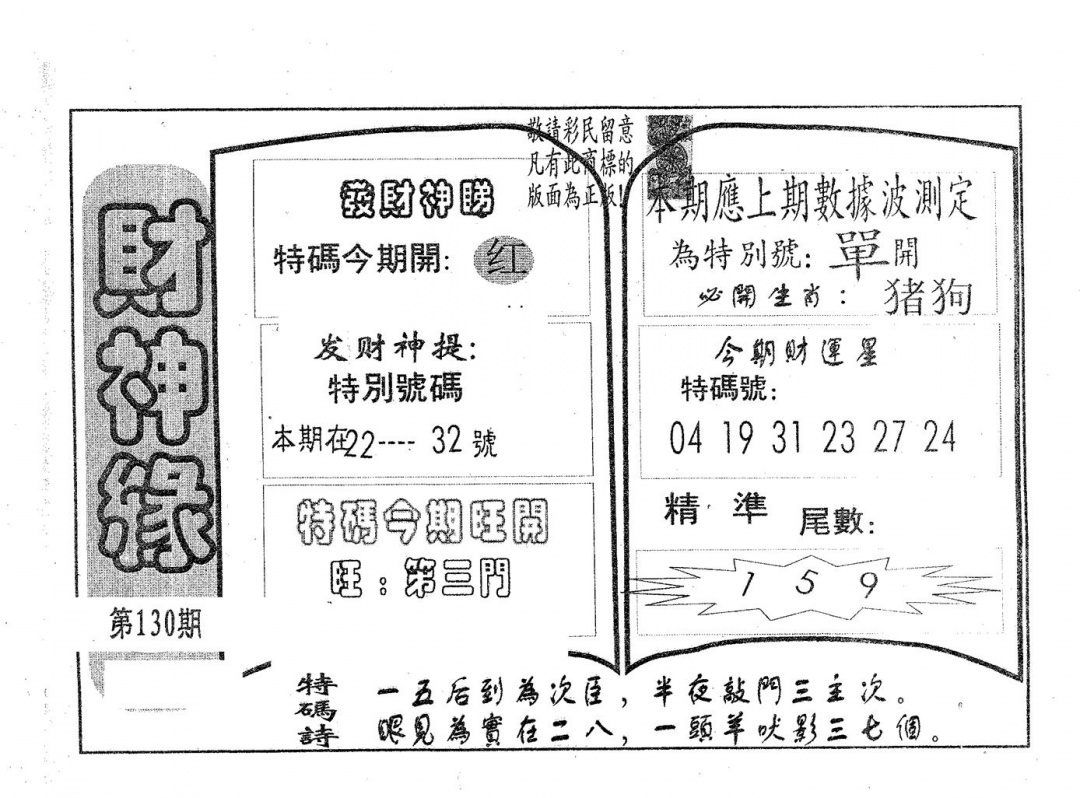 財神緣
第130期
敬請彩民留意
凡有此商標的
版面為正版!
發財神睇
特碼今期開: 红
发财神提:
特別號碼
本期在22---- 32 號
特碼今期旺開
旺: 第三門
本期應上期數據波測定
為特別號: 單開
必開生肖: 猪狗
今期財運星
特碼號:
04 19 31 23 27 24
精 準 尾數:
1 5 9
特碼詩
一五后到為次臣, 半夜敲門三主次。
眼見為實在二八, 一頭羊吠影三七個。